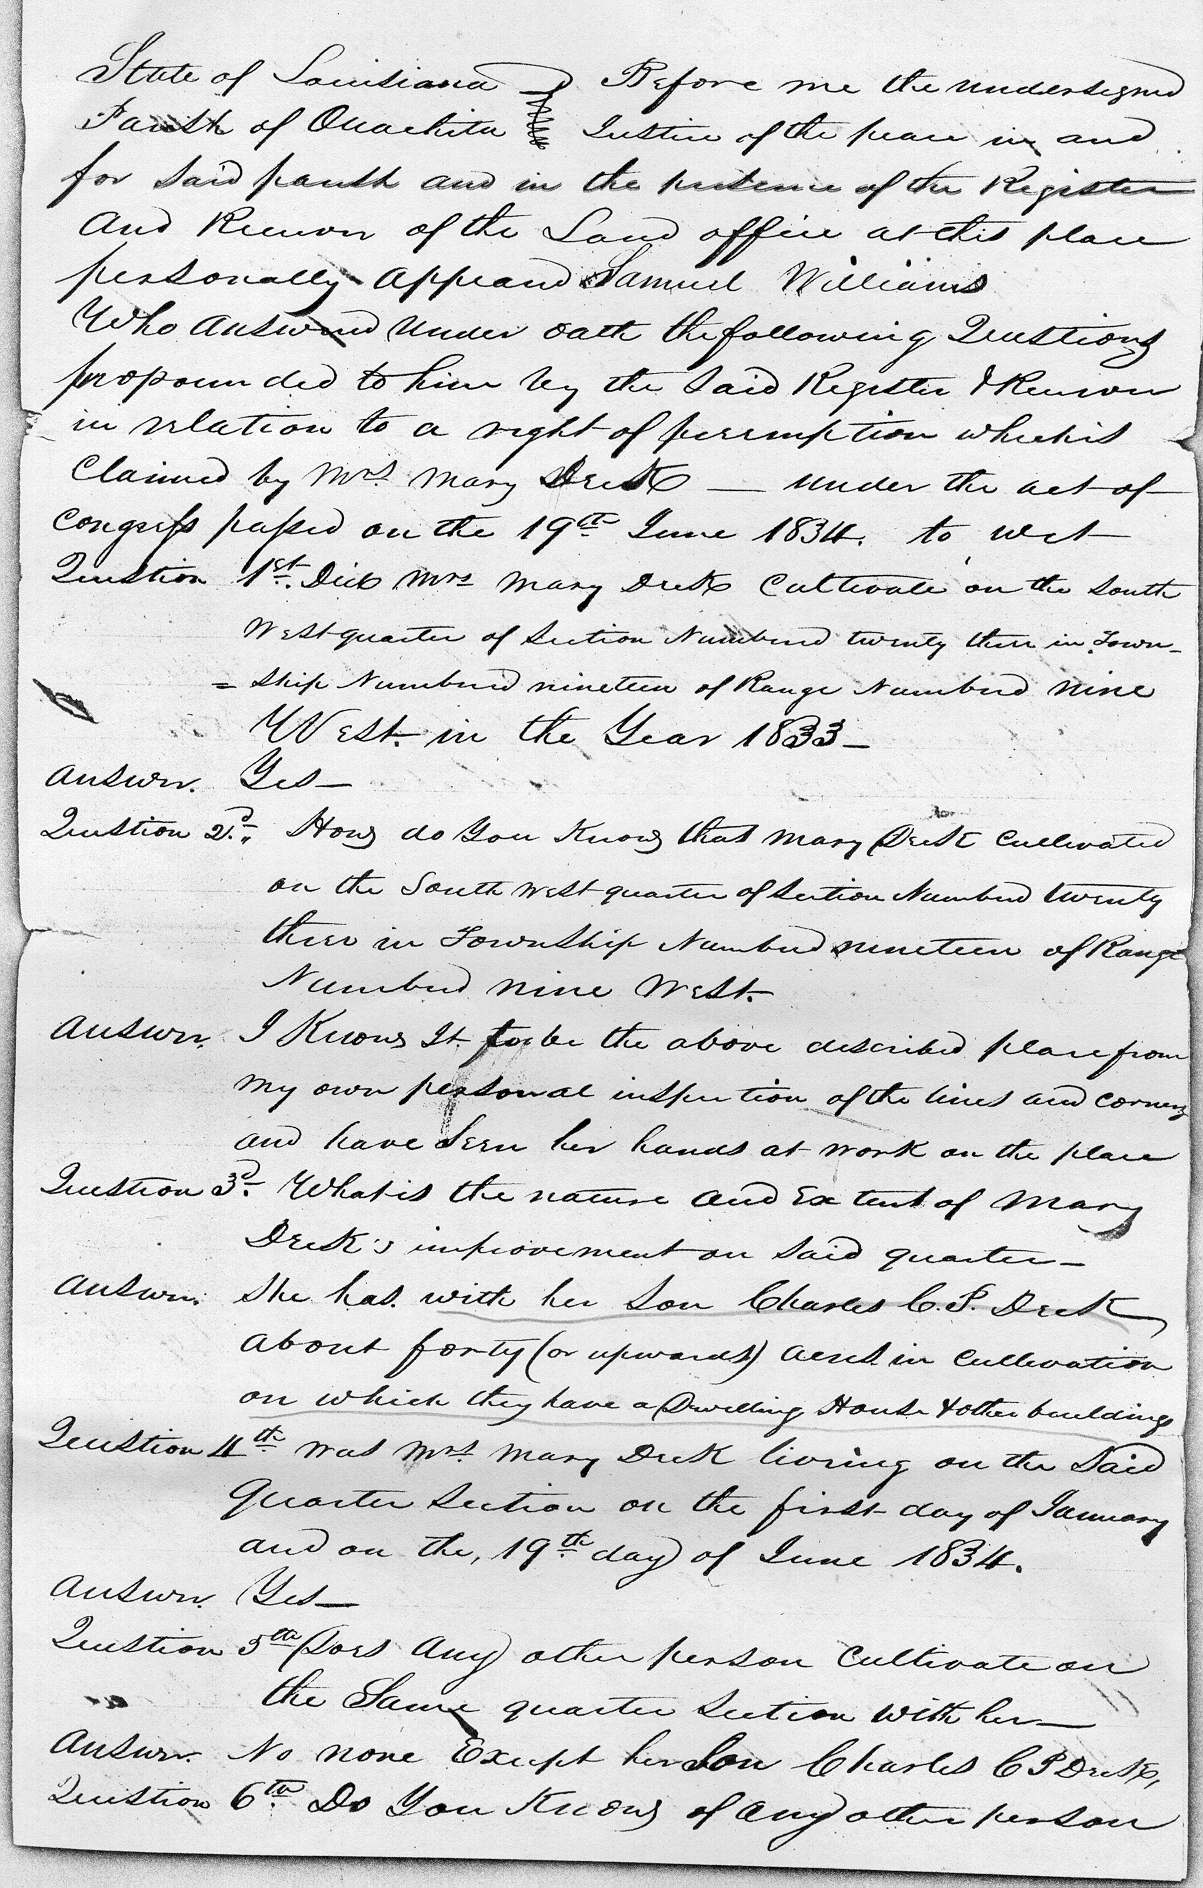 State of Louisiana } Before me the undersigned
Parish of Ouachita } Justice of the peace in and
for said parish and in the presence of the Register
and Receiver of the Land office at this place
personally appeared Samuel Williams
Who answered under oath the following Questions
propounded to him by the said Register & Receiver
in relation to a right of preemption which is
Claimed by Mrs. Mary Deek — under the act of
Congress passed on the 19th June 1834. to wit
Question 1st. Did Mrs Mary Deek Cultivate on the South
West quarter of Section Numbered twenty three in Town-
=ship Numbered nineteen of Range Numbered nine
West. in the Year 1833—
Answer. Yes—
Question 2d., How do You Know that Mary Deek Cultivated
on the South West quarter of Section Numbered twenty
three in Township Numbered nineteen of Range
Numbered nine West.
Answer. I Know It to be the above described place from
my own personal inspection of the lines and corners
and have seen her hands at work on the place
Question 3d. What is the nature and Extent of Mary
Deek's improvement on said quarter—
Answer. She has with her son Charles C. P. Deek
about forty (or upwards) acres in cultivation
on which they have a Dwelling House & other buildings
Question 4th. was Mrs. Mary Deek living on the said
Quarter Section on the first day of January
and on the, 19th. day of June 1834.
Answer. Yes—
Question 5th Does Any other person Cultivate on
the Same quarter Section with her—
Answer. No none Except her Son Charles C P Deek,
Question 6th. Do You Know of any other person